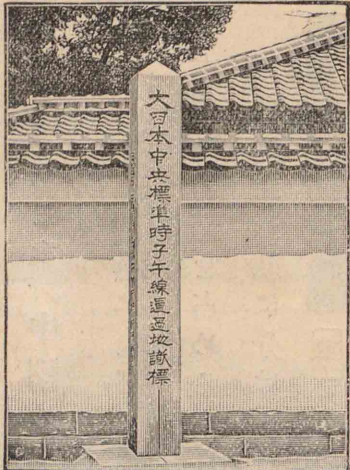 大日本中央標準時子午線通過地識標